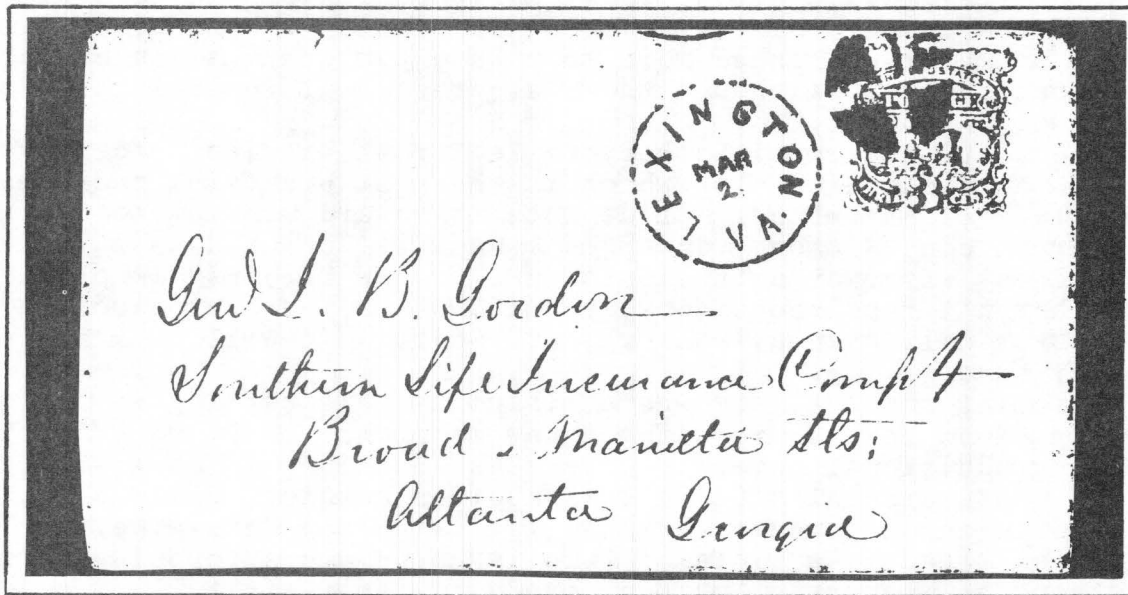 LEXINGTON
MAR
2
VA.
Genl J. B. Gordon
Southern Life Insurance Comp'y
Broad & Marietta Sts:
Atlanta Georgia